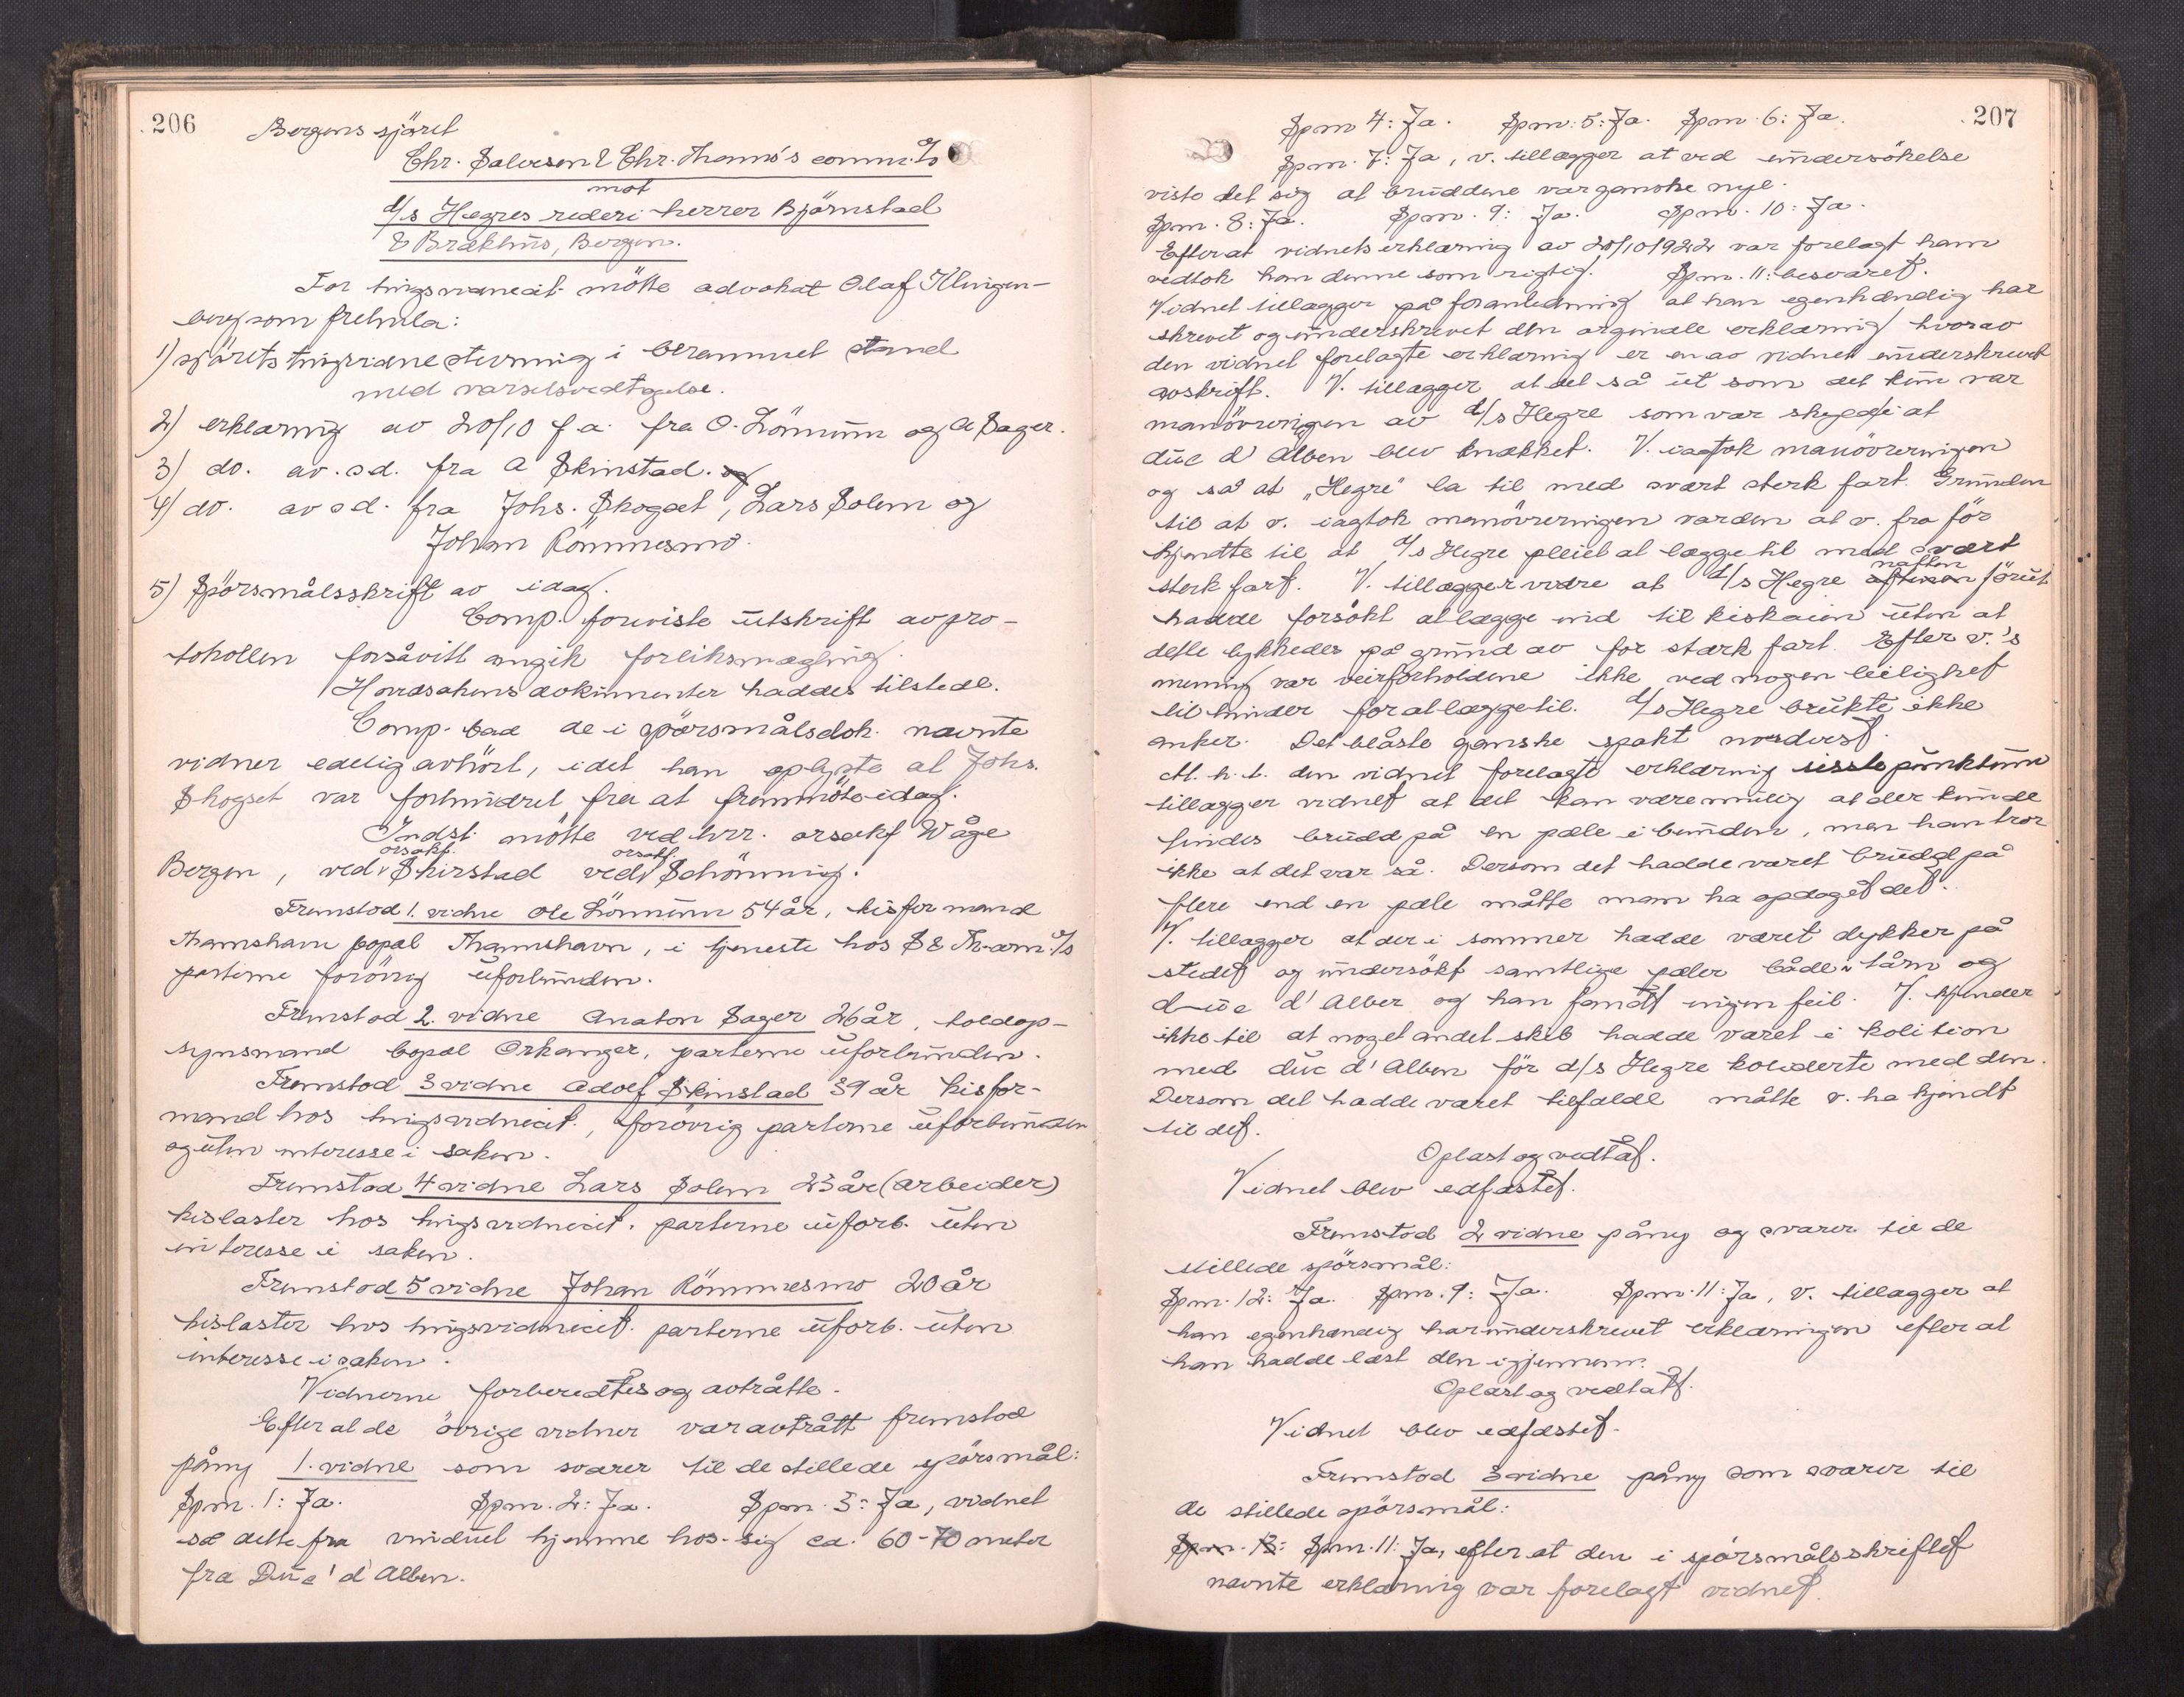 206
Bergens sjöret
Chr. Salvesen & Chr. Thams's comm. A/s
mot
d/s Hegres rederi herrer Björnstad
& Brækhus, Bergen.
For tingsvidnecit. mötte advokat Olaf Klingen-
berg som fremla:
1) sjörets tingsvidnestevning i berammet stand
med varselsvedtagelse.
2) erklæring av 20/10 f.a. fra O. Lönmum og A Sager.
3) do. av s.d. fra A Skinstad. og
4) do. av s d. fra Johs. Skogset, Lars Solem og
Johan Römmesmo.
5) Spörsmålsskrift av idag.
Comp. foreviste utskrift av pro-
tokollen forsåvitt angik forliksmægling.
Hovedsakens dokumenter haddes tilstede.
Comp. bad de i spörsmålsdok. nævnte
vidner edelig avhört, idet han oplyste at Johs.
Skogset var forhindret fra at fremmöte idag.
Indst. mötte ved hrr. orsakf Wåge
Bergen, ved orsakf. Skirstad ved orsakf. Schönning.
Fremstod 1. vidne Ole Lönmum 54 år, kisformand
Thamshavn bopæl Thamshavn, i tjeneste hos S & Th comm. A/s
partene forövrig uforbunden.
Fremstod 2. vidne Anaton Sager 26 år, toldop-
synsmand bopæl Orkanger, parterne uforbunden.
Fremstod 3 vidne Adolf Skinstad 39 år kisfor-
mand hos tingsvidnecit., forövrig parterne uforbunden
og uten interesse i saken.
Fremstod 4 vidne Lars Solem 23 år (arbeider)
kislaster hos tingsvidnecit. parterne uforb. uten
interesse i saken.
Fremstod 5 vidne Johan Römmesmo 20 år
kislaster hos tingsvidnecit. parterne uforb. uten
interesse i saken.
Vidnerne forberedtes og avtråtte.
Efter at de övrige vidner var avtrått fremstod
påny 1. vidne som svarer til de stillede spörsmål:
Spm. 1: Ja. Spm. 2: Ja. Spm. 3: Ja, vidnet
så dette fra vinduet hjemme hos sig ca. 60-70 meter
fra Duc' d'Alben.
207
Spm 4: Ja. Spm: 5: Ja. Spm. 6: Ja.
Spm. 7: Ja, v. tillægger at ved undersökelse
viste det sig at bruddene var ganske nye.
Spm. 8: Ja. Spm. 9: Ja. Spm. 10: Ja.
Efterat vidnets erklæring av 20/10 1922 var forelagt ham
vedtok han denne som rigtig. Spm. 11: besvaret.
Vidnet tillægger på foranledning at han egenhændig har
skrevet og underskrevet den orginale erklæring hvorav
den vidnet forelagte erklæring er en av vidnet underskrevet
avskrift. V. tillægger at det så ut som det kun var
manövreringen av d/s Hegre som var skyld i at
duc d'Alben blev knækket. V. iagtok manövreringen
og så at "Hegre" la til med svært sterk fart. Grunden
til at v. iagtok manövreringen var den at v. fra för
kjendte til at d/s Hegre pleiet at lægge til med svært
sterk fart. V. tillægger videre at d/s Hegre aftenen natten förut
hadde forsökt at lægge ind til kiskaien uten at
dette lykkedes på grund av for stærk fart. Efter v.'s
mening var veirforholdene ikke ved nogen leilighet
til hinder for at lægge til. d/s Hegre brukte ikke
anker. Det blåste ganske spakt nordvest.
M. h. t. den vidnet forelagte erklæring siste punktum
tillægger vidnet at det kan være mulig at der kunde
findes brudd på en pæle i bunden, men han tror
ikke at det var så. Dersom det hadde været brudd på
flere end en pæle måtte man ha opdaget det.
V. tillægger at der i sommer hadde været dykker på
stedet og undersökt samtlige pæler både i tårn og
duc d'Alber og han fandt ingen feil. V. kjender
ikke til at noget andet skib hadde været i kolision
med duc d'Alben för d/s Hegre koliderte med den.
Dersom det hadde været tilfælde måtte v. ha kjendt
til det.
Oplæst og vedtåt.
Vidnet blev edfæstet.
Fremstod 2 vidne påny og svarer til de
stillede spörsmål:
Spm. 12: Ja. Spm. 9: Ja. Spm. 11: Ja, v. tillægger at
han egenhændig har underskrevet erklæringen efter at
han hadde læst den igjennem.
Oplæst og vedtatt.
Vidnet blev edfæstet.
Fremstod 3 vidne påny som svarer til
de stillede spörsmål:
Spm. 13: Spm. 11: Ja, efter at den i spörsmålsskriftet
nævnte erklæring var forelagt vidnet.